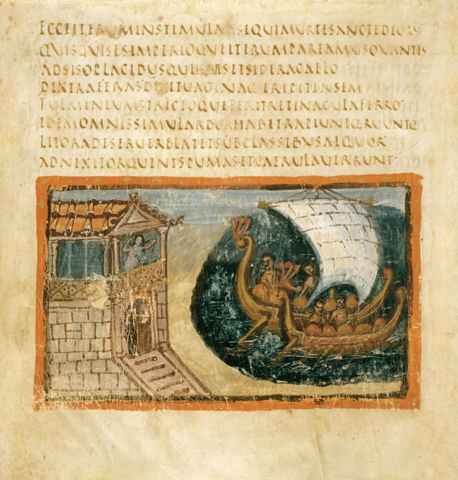 ECCEITERUMINSTIMULATSEQUIMURTESANCTEDEORU
QUISQUISESIMPERIOQUEITERUMPAREMUSOUANTES
ADSISOPLACIDUSQUEIUUESETSIDERACAELO
DEXTRAFERASDIXITUAGINAQ·ERIPITENSEM
FULMINEUMSTRICTOQUEFERITRETINACULAFERRO
IDEMOMNISSIMULARDORHABETRAPIUNTQ·RUUNTQ·
LITORADESERUERELATETSUBCLASSIBUSAEQUOR
ADNIXITORQUENTSPUMASETCAERULAUERRUNT